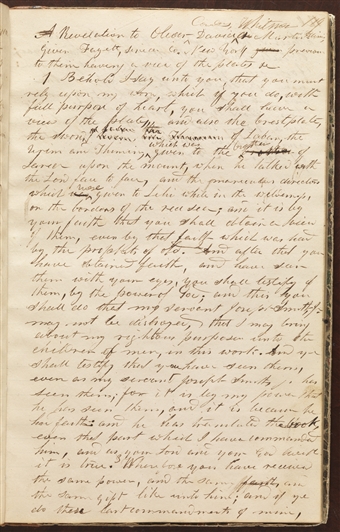 A Revelation to Oliver David & Martin
Given Fayette Seneca Co. New York previous
to them having a view of the plates &c
1 Behold I say unto you, that you must
rely upon my word, which if you do, with
full purpose of heart, you shall have a
view of the plates, and also the brestplate,
the sword of Laban, the
Urim and Thumim, which was given to the brother of
Jared upon the mount, when he talked with
the Lord face to face, and the marvelous directors
which was given to Lehi while in the wilderness,
on the borders of the red sea; and it is by
your faith that you shall obtain a view
of them, even by that faith which was had
by the prophets of old. And after that you
have obtained faith, and have seen
them with your eyes, you shall testify of
them, by the power of God; and this you
shall do that my servant Joseph Smith Jr
may not be destroyed, that I may bring
about my righteous purposes unto the
children of men, in this work. And ye
shall testify that you have seen them,
even as my servant Joseph Smith Jr has
seen them; for it is by my power that
he has seen them, and it is because he
had faith: and he has translated the book,
even that part which I have commanded
him, and as your Lord and your God liveth
it is true. Wherefore you have received
the same power, and the same faith, and
the same gift like unto him; and if ye
do these last commandments of mine,